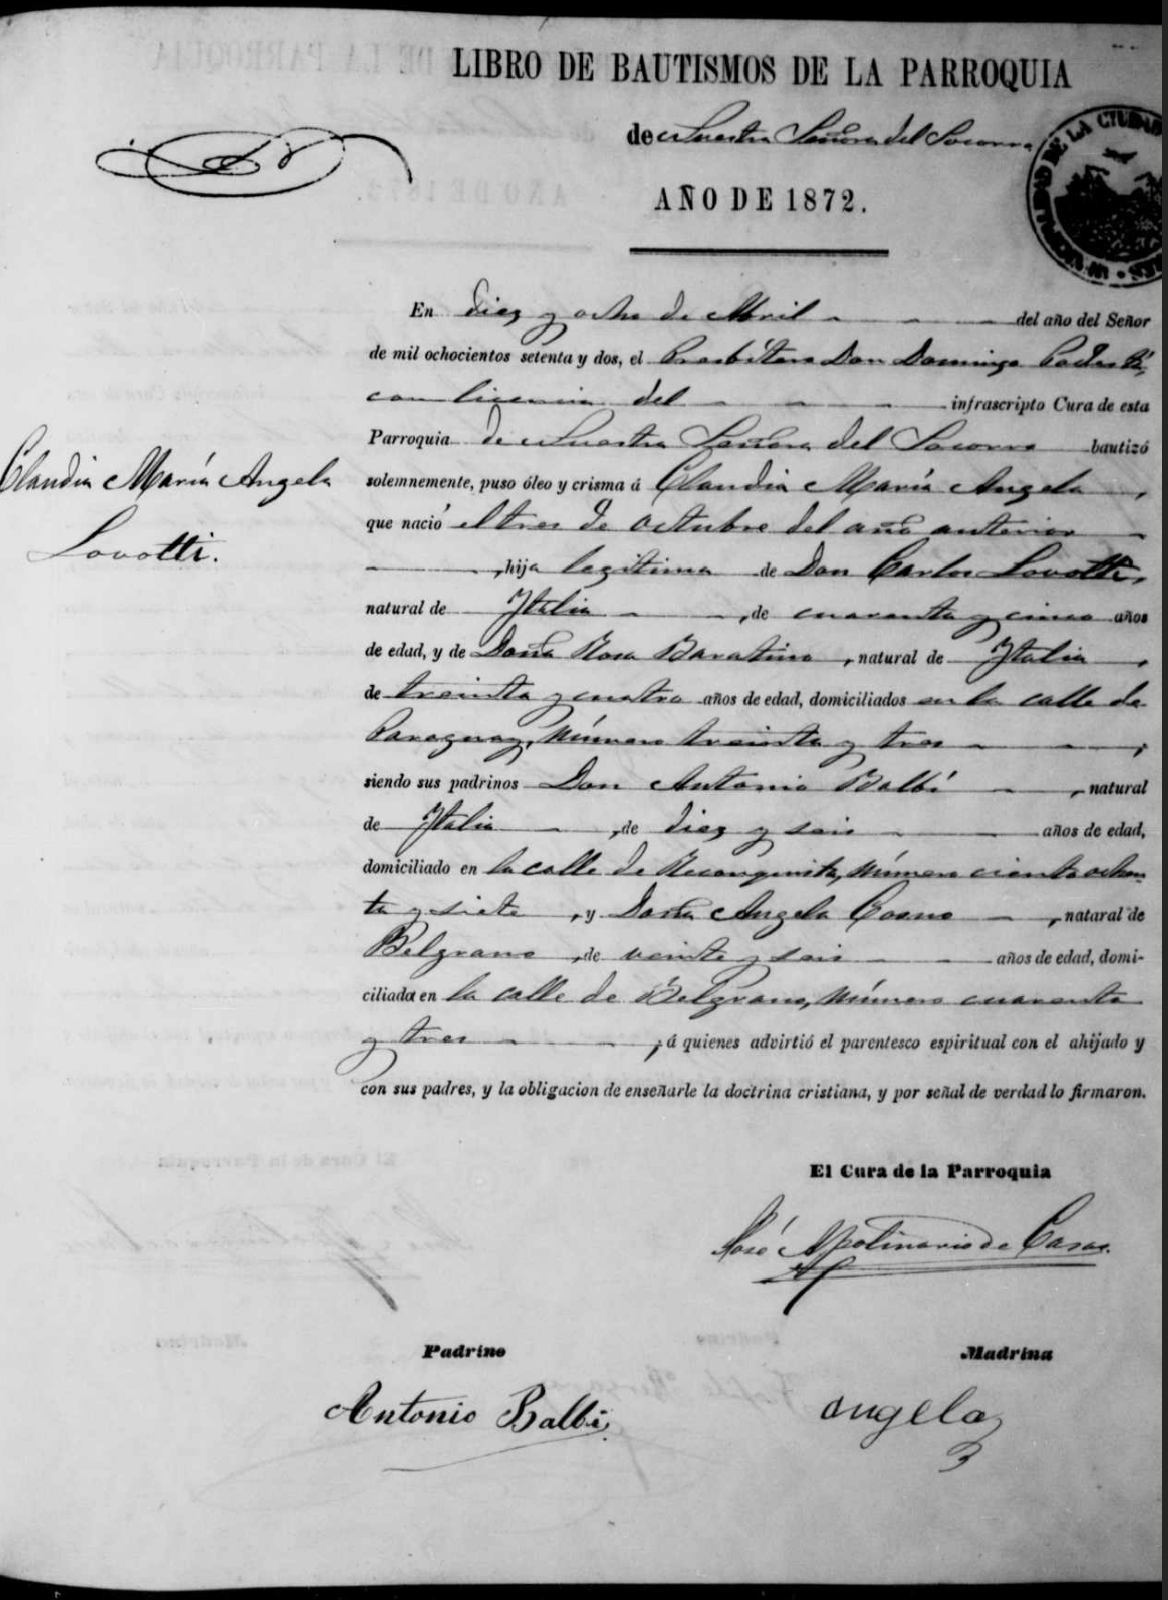 LIBRO DE BAUTISMOS DE LA PARROQUIA
de Nuestra Señora del Socorro
AÑO DE 1872.
En diez y ocho de Abril del año del Señor
de mil ochocientos setenta y dos, el Presbítero Don Domingo
con licencia del infrascripto Cura de esta
Parroquia de Nuestra Señora del Socorro bautizó
Claudia María Angela
Lovotti.
solemnemente, puso óleo y crisma á Claudia María Angela,
que nació el tres de Octubre del año anterior
, hija legítima de Don Carlos Lovotti,
natural de Italia, de cuarenta y cinco años
de edad, y de Doña Rosa Baratino, natural de Italia,
de treinta y cuatro años de edad, domiciliados en la calle de
Paraguay, número treinta y tres,
siendo sus padrinos Don Antonio Balbi, natural
de Italia, de diez y seis años de edad,
domiciliado en la calle de Reconquista, número ciento ochen-
ta y siete, y Doña Angela, nataral de
Belgrano, de veinte y seis años de edad, domi-
ciliada en la calle de Belgrano, número cuarenta
y tres; á quienes advirtió el parentesco espiritual con el ahijado y
con sus padres, y la obligacion de enseñarle la doctrina cristiana, y por señal de verdad lo firmaron.
El Cura de la Parroquia
José Apolinario de Casas
Padrino
Madrina
Antonio Balbi
angela